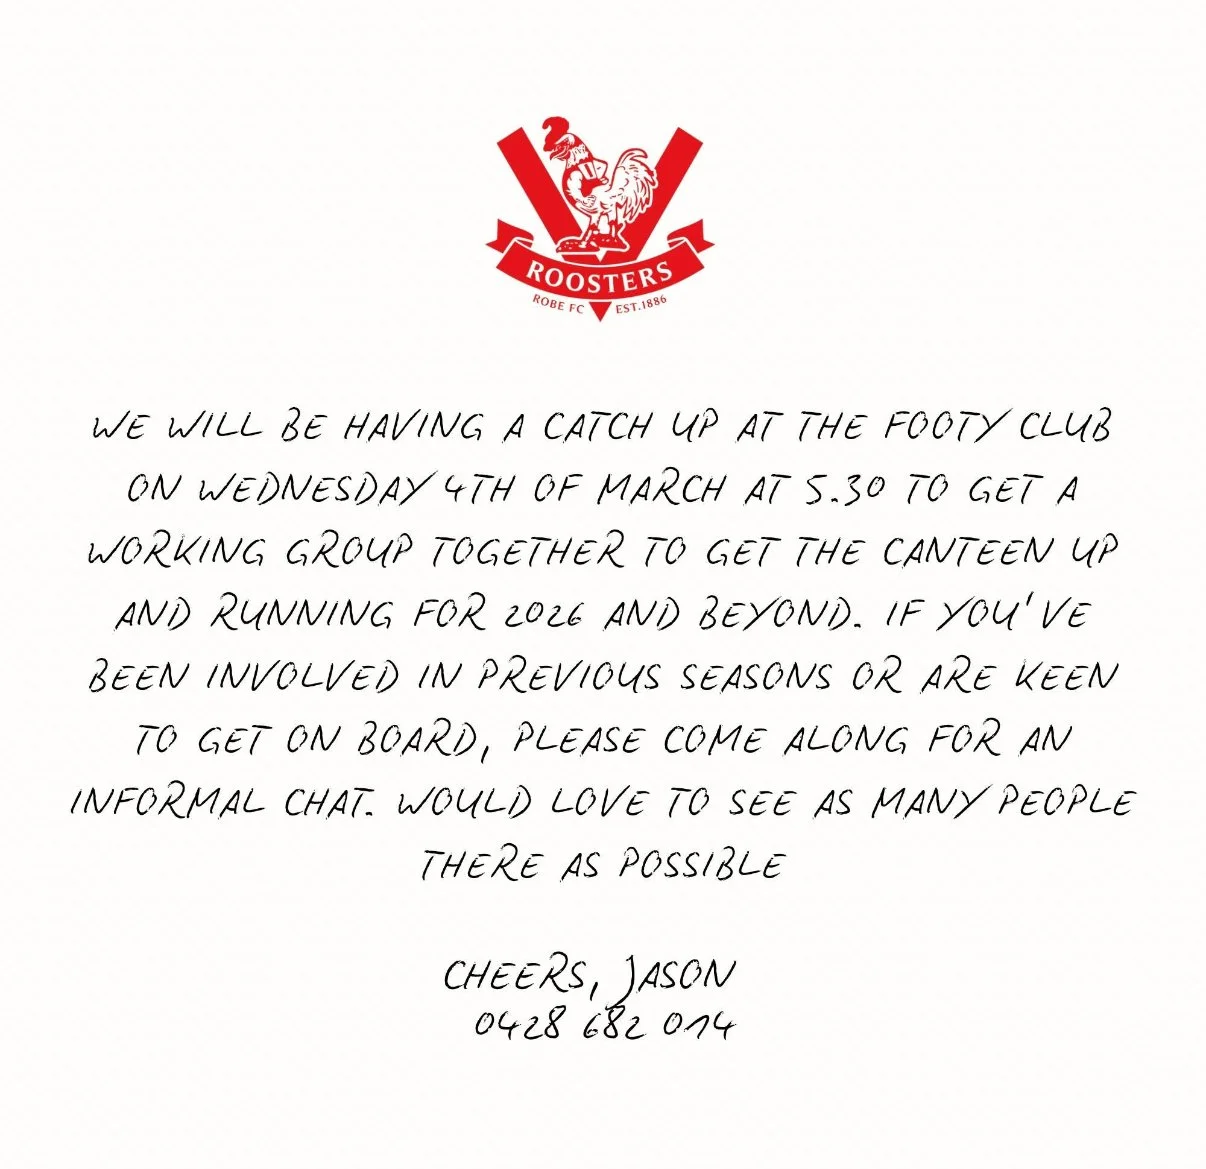 ROOSTERS
ROBE FC EST.1886
WE WILL BE HAVING A CATCH UP AT THE FOOTY CLUB
ON WEDNESDAY 4TH OF MARCH AT 5.30 TO GET A
WORKING GROUP TOGETHER TO GET THE CANTEEN UP
AND RUNNING FOR 2026 AND BEYOND. IF YOU'VE
BEEN INVOLVED IN PREVIOUS SEASONS OR ARE KEEN
TO GET ON BOARD, PLEASE COME ALONG FOR AN
INFORMAL CHAT. WOULD LOVE TO SEE AS MANY PEOPLE
THERE AS POSSIBLE
CHEERS, JASON
0428 682 014